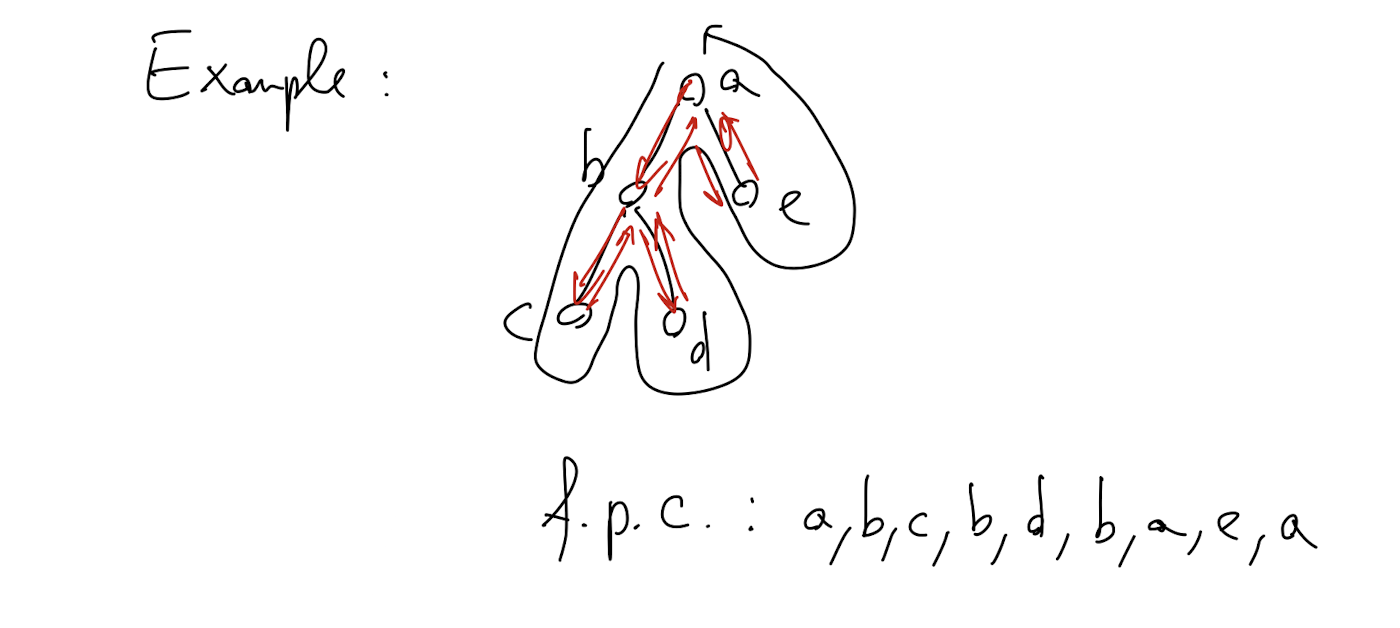 Example :
a
b
e
c
d
f.p.c. : a,b,c,b,d,b,a,e,a